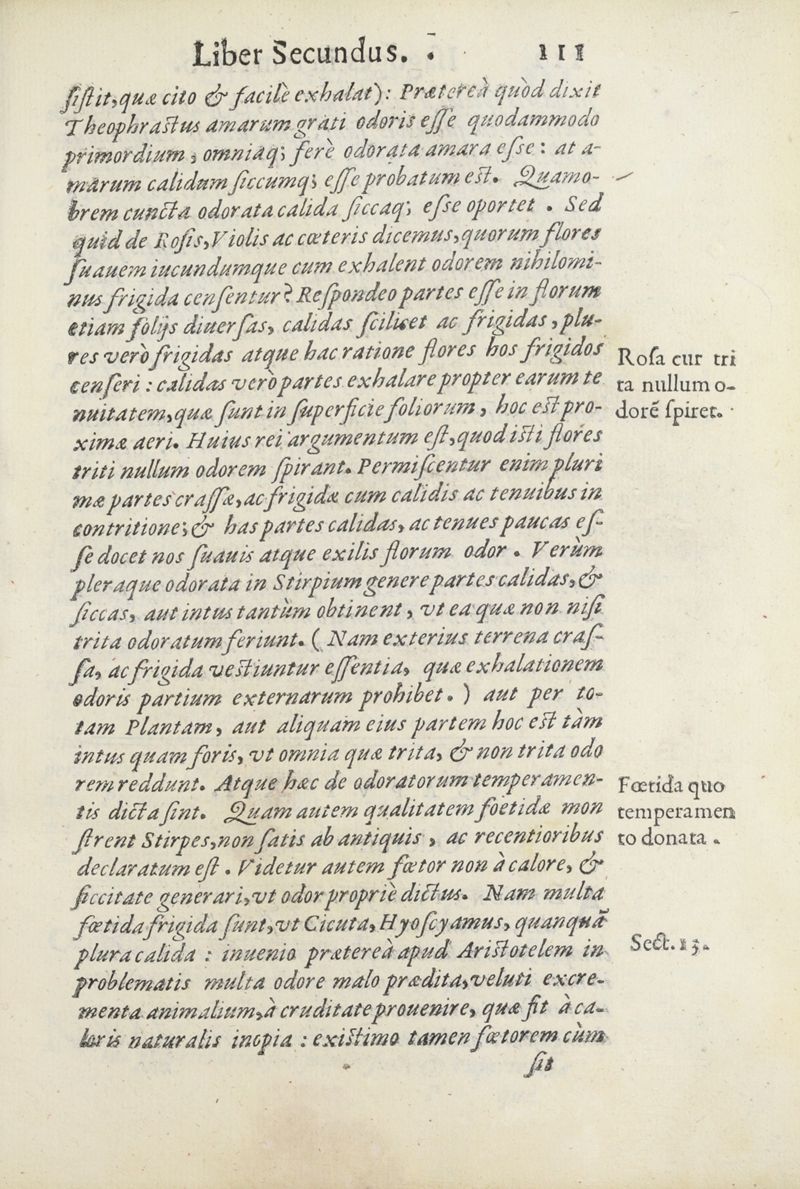 Liber Secundus. 111
ſiſtit, quæ cito & facile exhalat): Prætereà quòd dixit
Theophraſtus amarum grati odoris eſſe quodammodo
primordium, omniáq; ferè odorata amara eſse: at a-
marum calidum ſiccumq; eſſe probatum eſt. Quamo-
brem cuncta odorata calida ſiccaq; eſse oportet. Sed
quid de Roſis, Violis ac cœteris dicemus, quorum flores
ſuauem iucundumque cum exhalent odorem nihilomi-
nus frigida cenſentur? Reſpondeo partes eſſe in florum
etiam folijs diuerſas, calidas ſcilicet ac frigidas, plu-
res verò frigidas atque hac ratione flores hos frigidos
cenſeri: calidas verò partes exhalare propter earum te
nuitatem, quæ ſunt in ſuperficie foliorum, hoc eſt pro-
ximæ aeri. Huius rei argumentum eſt, quod iſti flores
triti nullum odorem ſpirant. Permiſcentur enim pluri
mæ partes craſſæ, ac frigidæ cum calidis ac tenuibus in
contritione; & has partes calidas, ac tenues paucas eſ-
ſe docet nos ſuauis atque exilis florum odor. Verùm
pleraque odorata in Stirpium genere partes calidas, &
ſiccas, aut intus tantùm obtinent, vt ea quæ non niſi
trita odoratum feriunt. (Nam exterius terrena craſ-
ſa, ac frigida veſtiuntur eſſentia, quæ exhalationem
odoris partium externarum prohibet.) aut per to-
tam Plantam, aut aliquam eius partem hoc eſt tàm
intus quam foris, vt omnia quæ trita, & non trita odo
rem reddunt. Atque hæc de odoratorum temperamen-
tis dicta ſint. Quam autem qualitatem foetidæ mon
ſtrent Stirpes, non ſatis ab antiquis, ac recentioribus
declaratum eſt. Videtur autem fœtor non à calore, &
ſiccitate generari, vt odor propriè dictus. Nam multa
fœtida frigida ſunt, vt Cicuta, Hyoſcyamus, quanquã
plura calida: inuenio prætereà apud Ariſtotelem in
problematis multa odore malo prædita, veluti excre-
menta animalium, à cruditate prouenire, quæ fit à ca-
loris naturalis inopia: exiſtimo tamen fœtorem cùm
ſit
Roſa cur tri
ta nullum o-
dorẽ ſpiret.
Fœtida quo
temperamen
to donata.
Sect. 13.